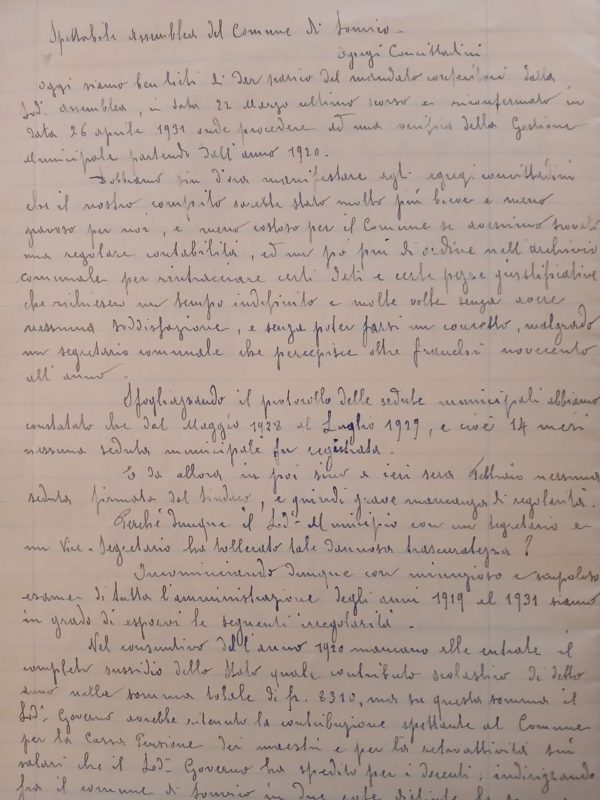 Spettabile Assemblea del Comune di Sonvico.
Egregi Concittadini
Oggi siamo ben lieti di dar scarico del mandato conferitoci dalla
Lod. Assemblea, in data 22 Marzo ultimo scorso e riconfermato in
data 26 aprile 1931 onde procedere ad una verifica della Gestione
Municipale partendo dall'anno 1920.
Dobbiamo sin d'ora manifestare agli egregi concittadini
che il nostro compito sarebbe stato molto più breve e meno
gravoso per noi, e meno costoso per il Comune se avessimo trovato
una regolare contabilità, ed un pò più di ordine nell'archivio
comunale per rintracciare certi dati e certe pezze giustificative
che richiesero un tempo indefinito e molte volte senza avere
nessuna soddisfazione, e senza poter farsi un concetto, malgrado
un segretario comunale che percepisce oltre franchi novecento
all'anno.
Sfogliazando il protocollo delle sedute municipali abbiamo
constatato che dal Maggio 1928 al Luglio 1929, e cioè 14 mesi
nessuna seduta municipale fu registrata.
E da allora in poi sino a ieri sera Febbraio nessuna
seduta firmata dal Sindaco, e quindi grave mancanza di regolarità.
Perchè dunque il Lod. Municipio con un Segretario e
un Vice-Segretario ha tollerato tale dannosa trascuratezza?
Incominciando dunque con minuzioso e scrupoloso
esame di tutta l'amministrazione degli anni 1919 al 1931 siamo
in grado di esporvi le seguenti irregolarità.
Nel consuntivo dell'anno 1920 mancano alle entrate il
completo sussidio dello Stato quale contributo scolastico di detto
anno nella somma totale di fr. 8310, ma su questa somma il
Lod. Governo avrebbe ritenuto la contribuzione spettante al Comune
per la Cassa Pensione dei maestri e per la retroattività sui
salari che il Lod. Governo ha spedito per i docenti; indirizzando
fra il comune di Sonvico in due rate distinte